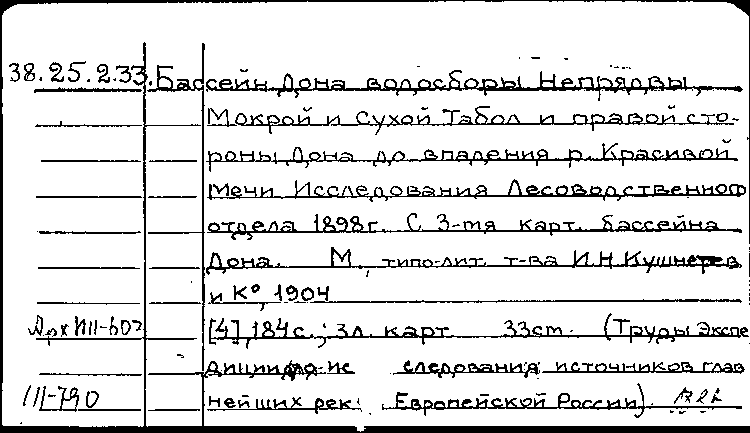 38.25.2.33. Бассейн Дона водосборы Непрядвы,
Мокрой и Сухой Табол и правой сто-
роны Дона до впадения р. Красивой
Мечи Исследования Лесоводственного
отдела 1898г. С 3-мя карт. бассейна
Дона. М., типо-лит. т-ва И.Н Кушнерев
и К°, 1904
[4], 184с.; 3л. карт 33cm. (Труды Экспе
диции по ис следования источников глав
III-790 нейших рек Европейской России).